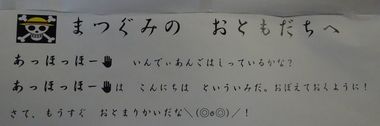 まつぐみの おともだちへ
あっほっほー✋ いんでぃあんごはしっているかな?
あっほっほー✋は こんにちは といういみだ。おぼえておくように!
さて、もうすぐ おとまりかいだな\(◎o◎)/!